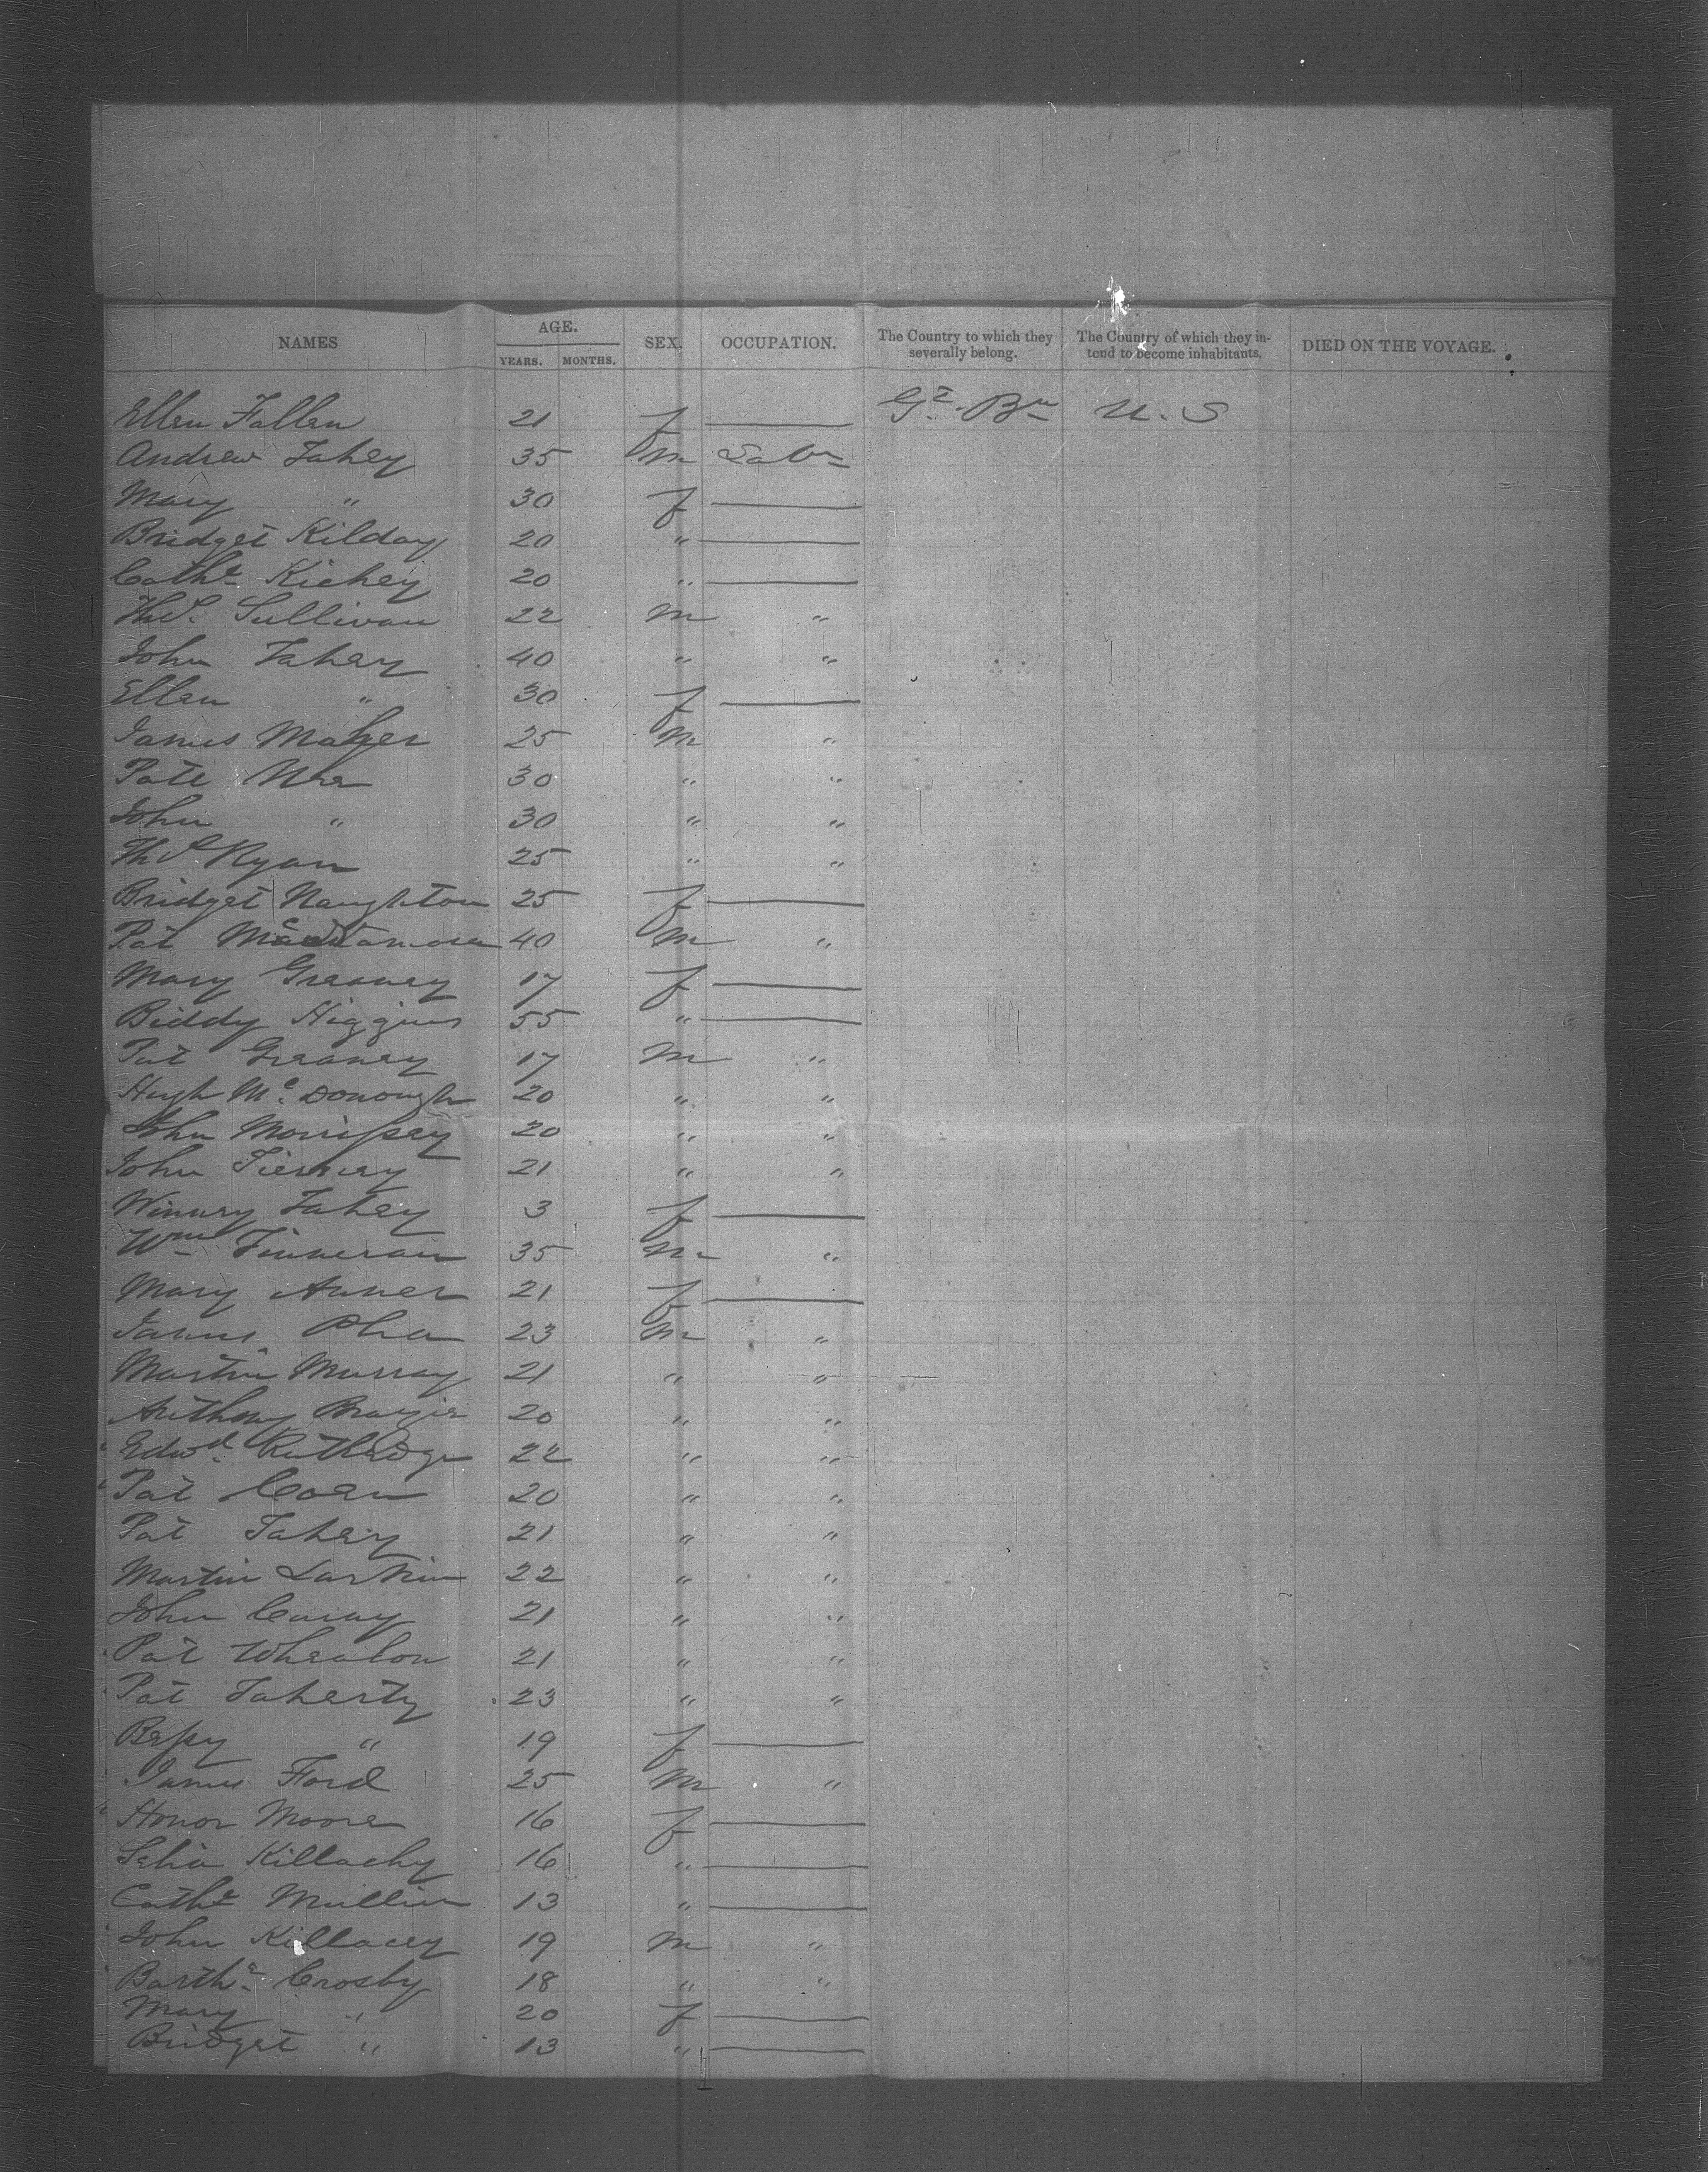 NAMES AGE. SEX. OCCUPATION. The Country to which they severally belong. The Country of which they intend to become inhabitants. DIED ON THE VOYAGE.
YEARS. MONTHS.
Ellen Fallen 21 f — Gt. Bn U. S
Andrew Fahey 35 m Labr
Mary " 30 f —
Bridget Kilday 20 " —
Cathe Kichey 20 " —
Thos. Sullivan 22 m "
John Fahey 40 " "
Ellen " 30 f —
James Maher 25 m "
Patt 30 " "
John " 30 " "
Thos Ryan 25 " "
Bridget Naughton 25 f —
Pat 40 m "
Mary Greaney 17 f —
Biddy Higgins 55 " —
Pat Greaney 17 m "
Hugh Mc. Donough 20 " "
John Morrissey 20 " "
John Tierney 21 " "
Winney Fahey 3 f —
Wm Finneran 35 m "
Mary 21 f —
James 23 m "
Martin Murray 21 " "
Anthony 20 " "
Edwd. Rutledge 22 " "
Pat Coen 20 " "
Pat Fahey 21 " "
Martin Larkin 22 " "
John 21 " "
Pat Whealon 21 " "
Pat Faherty 23 " "
Bessy " 19 f —
James Ford 25 m "
Honor Moore 16 f —
Killachy 16 " —
Cathe Mullin 13 " —
John Killacey 19 m "
Barthw. Crosby 18 " "
Mary " 20 f —
Bridget " 13 " —